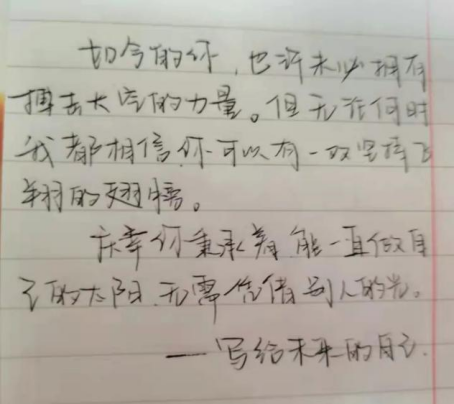 如今的你，也许未必拥有
搏击大空的力量。但无论何时
我都相信你可以有一双坚持飞
翔的翅膀。
庆幸你秉承着，能一直做自
己的太阳，无需凭借别人的光。
—写给未来的自己.